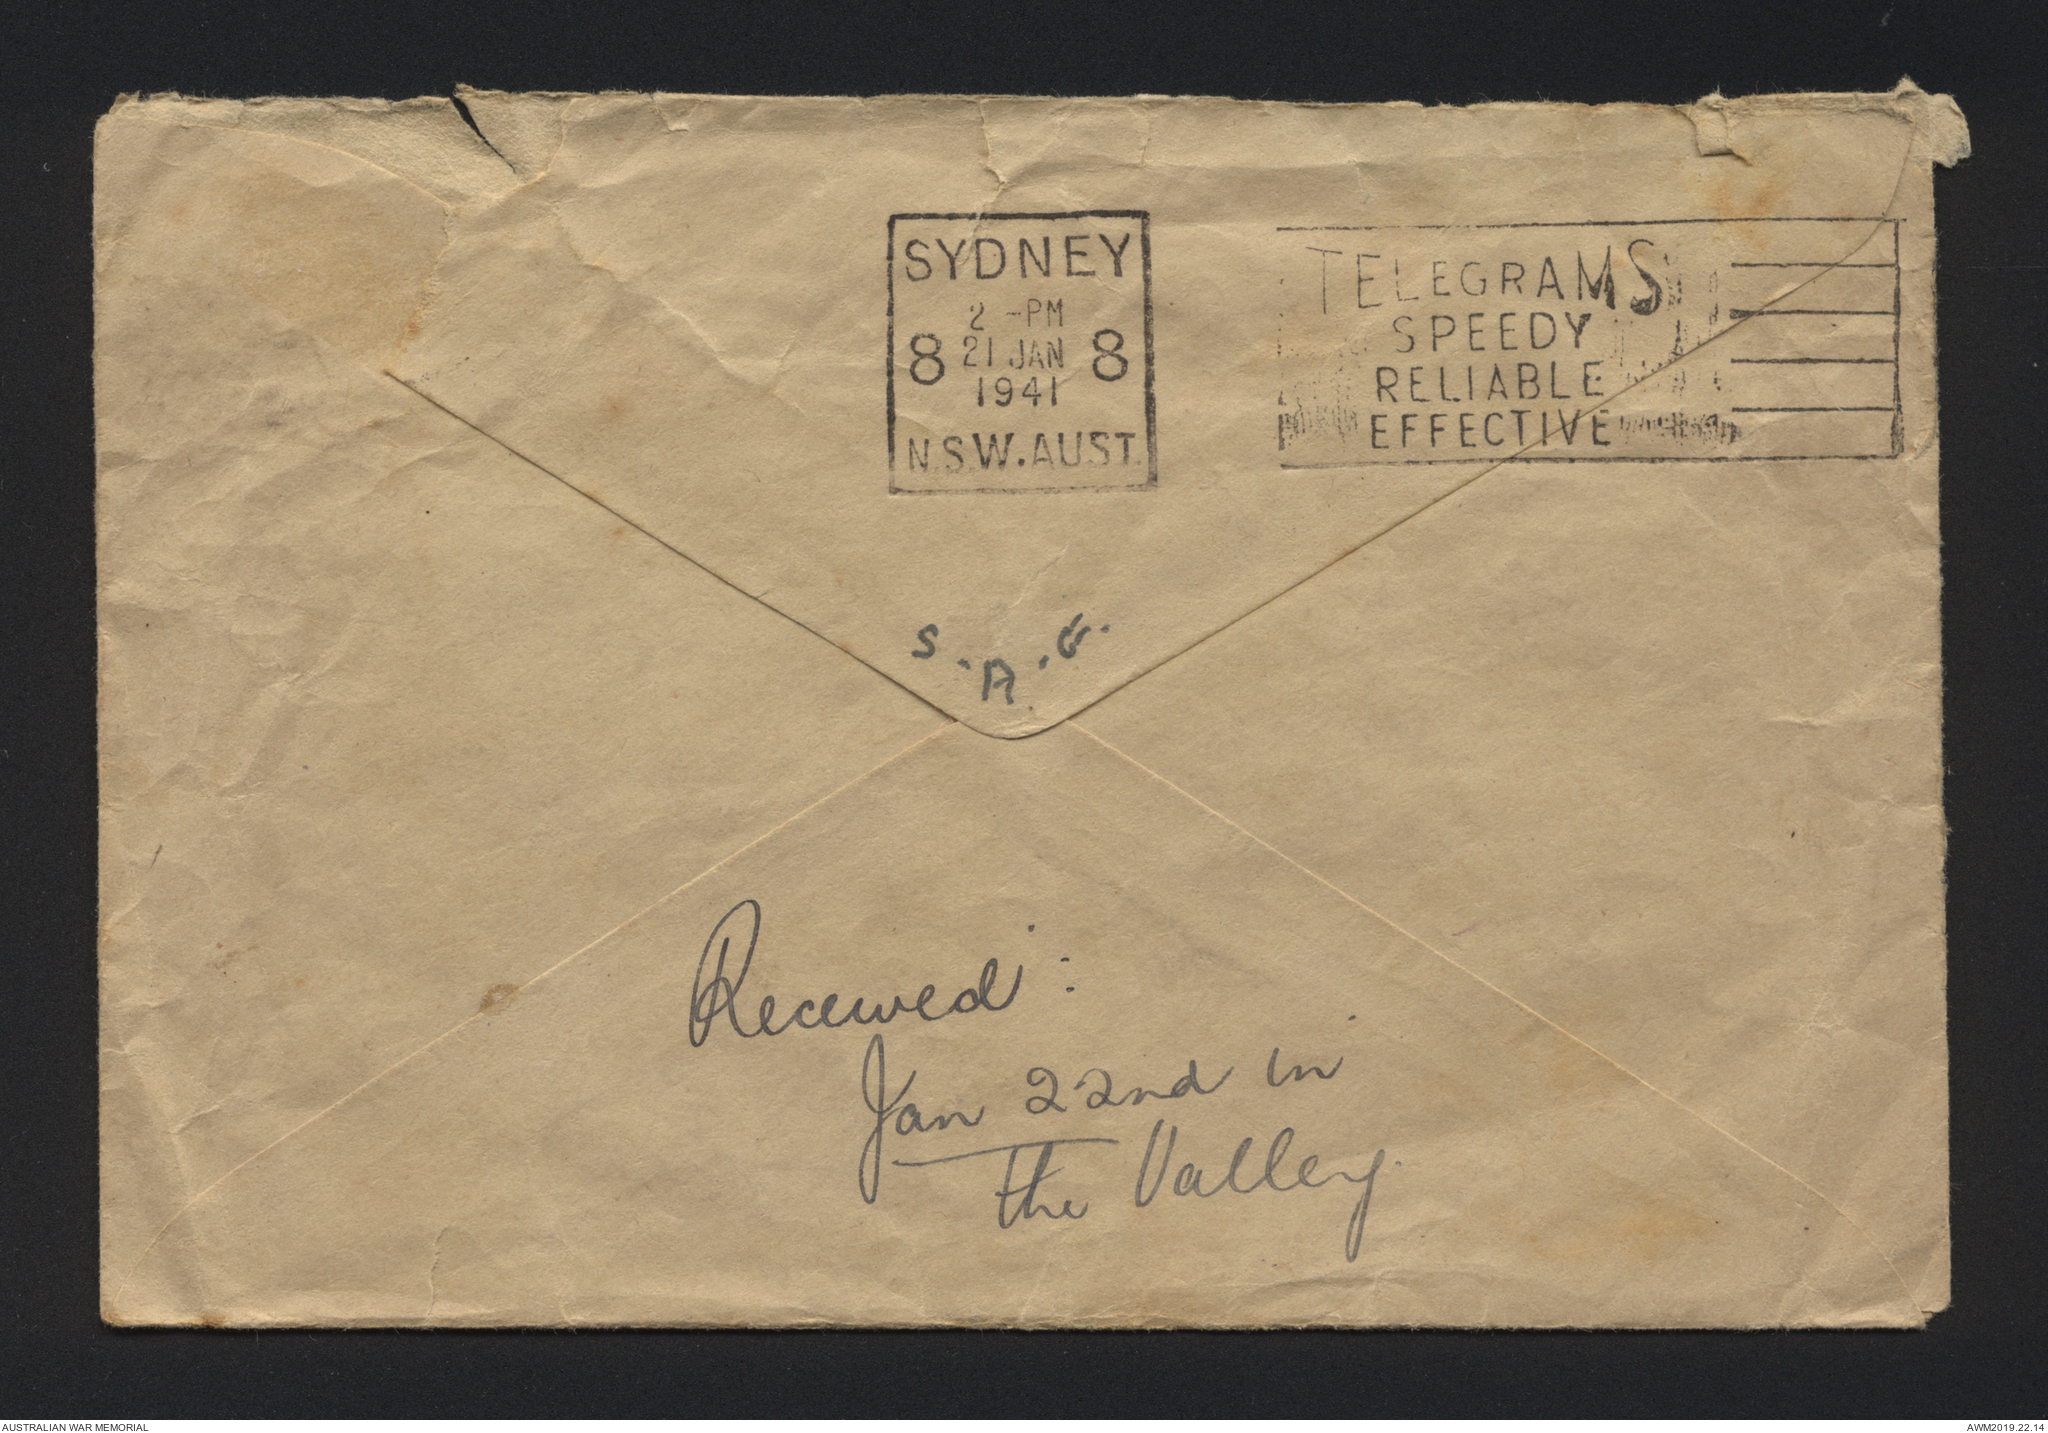 SYDNEY
2 -PM
8 21 JAN 8
1941
N.S.W. AUST.
TELEGRAMS
SPEEDY
RELIABLE
EFFECTIVE
S.A.G.
Received:
Jan 22nd in
the Valley.
AUSTRALIAN WAR MEMORIAL
AWM2019.22.14